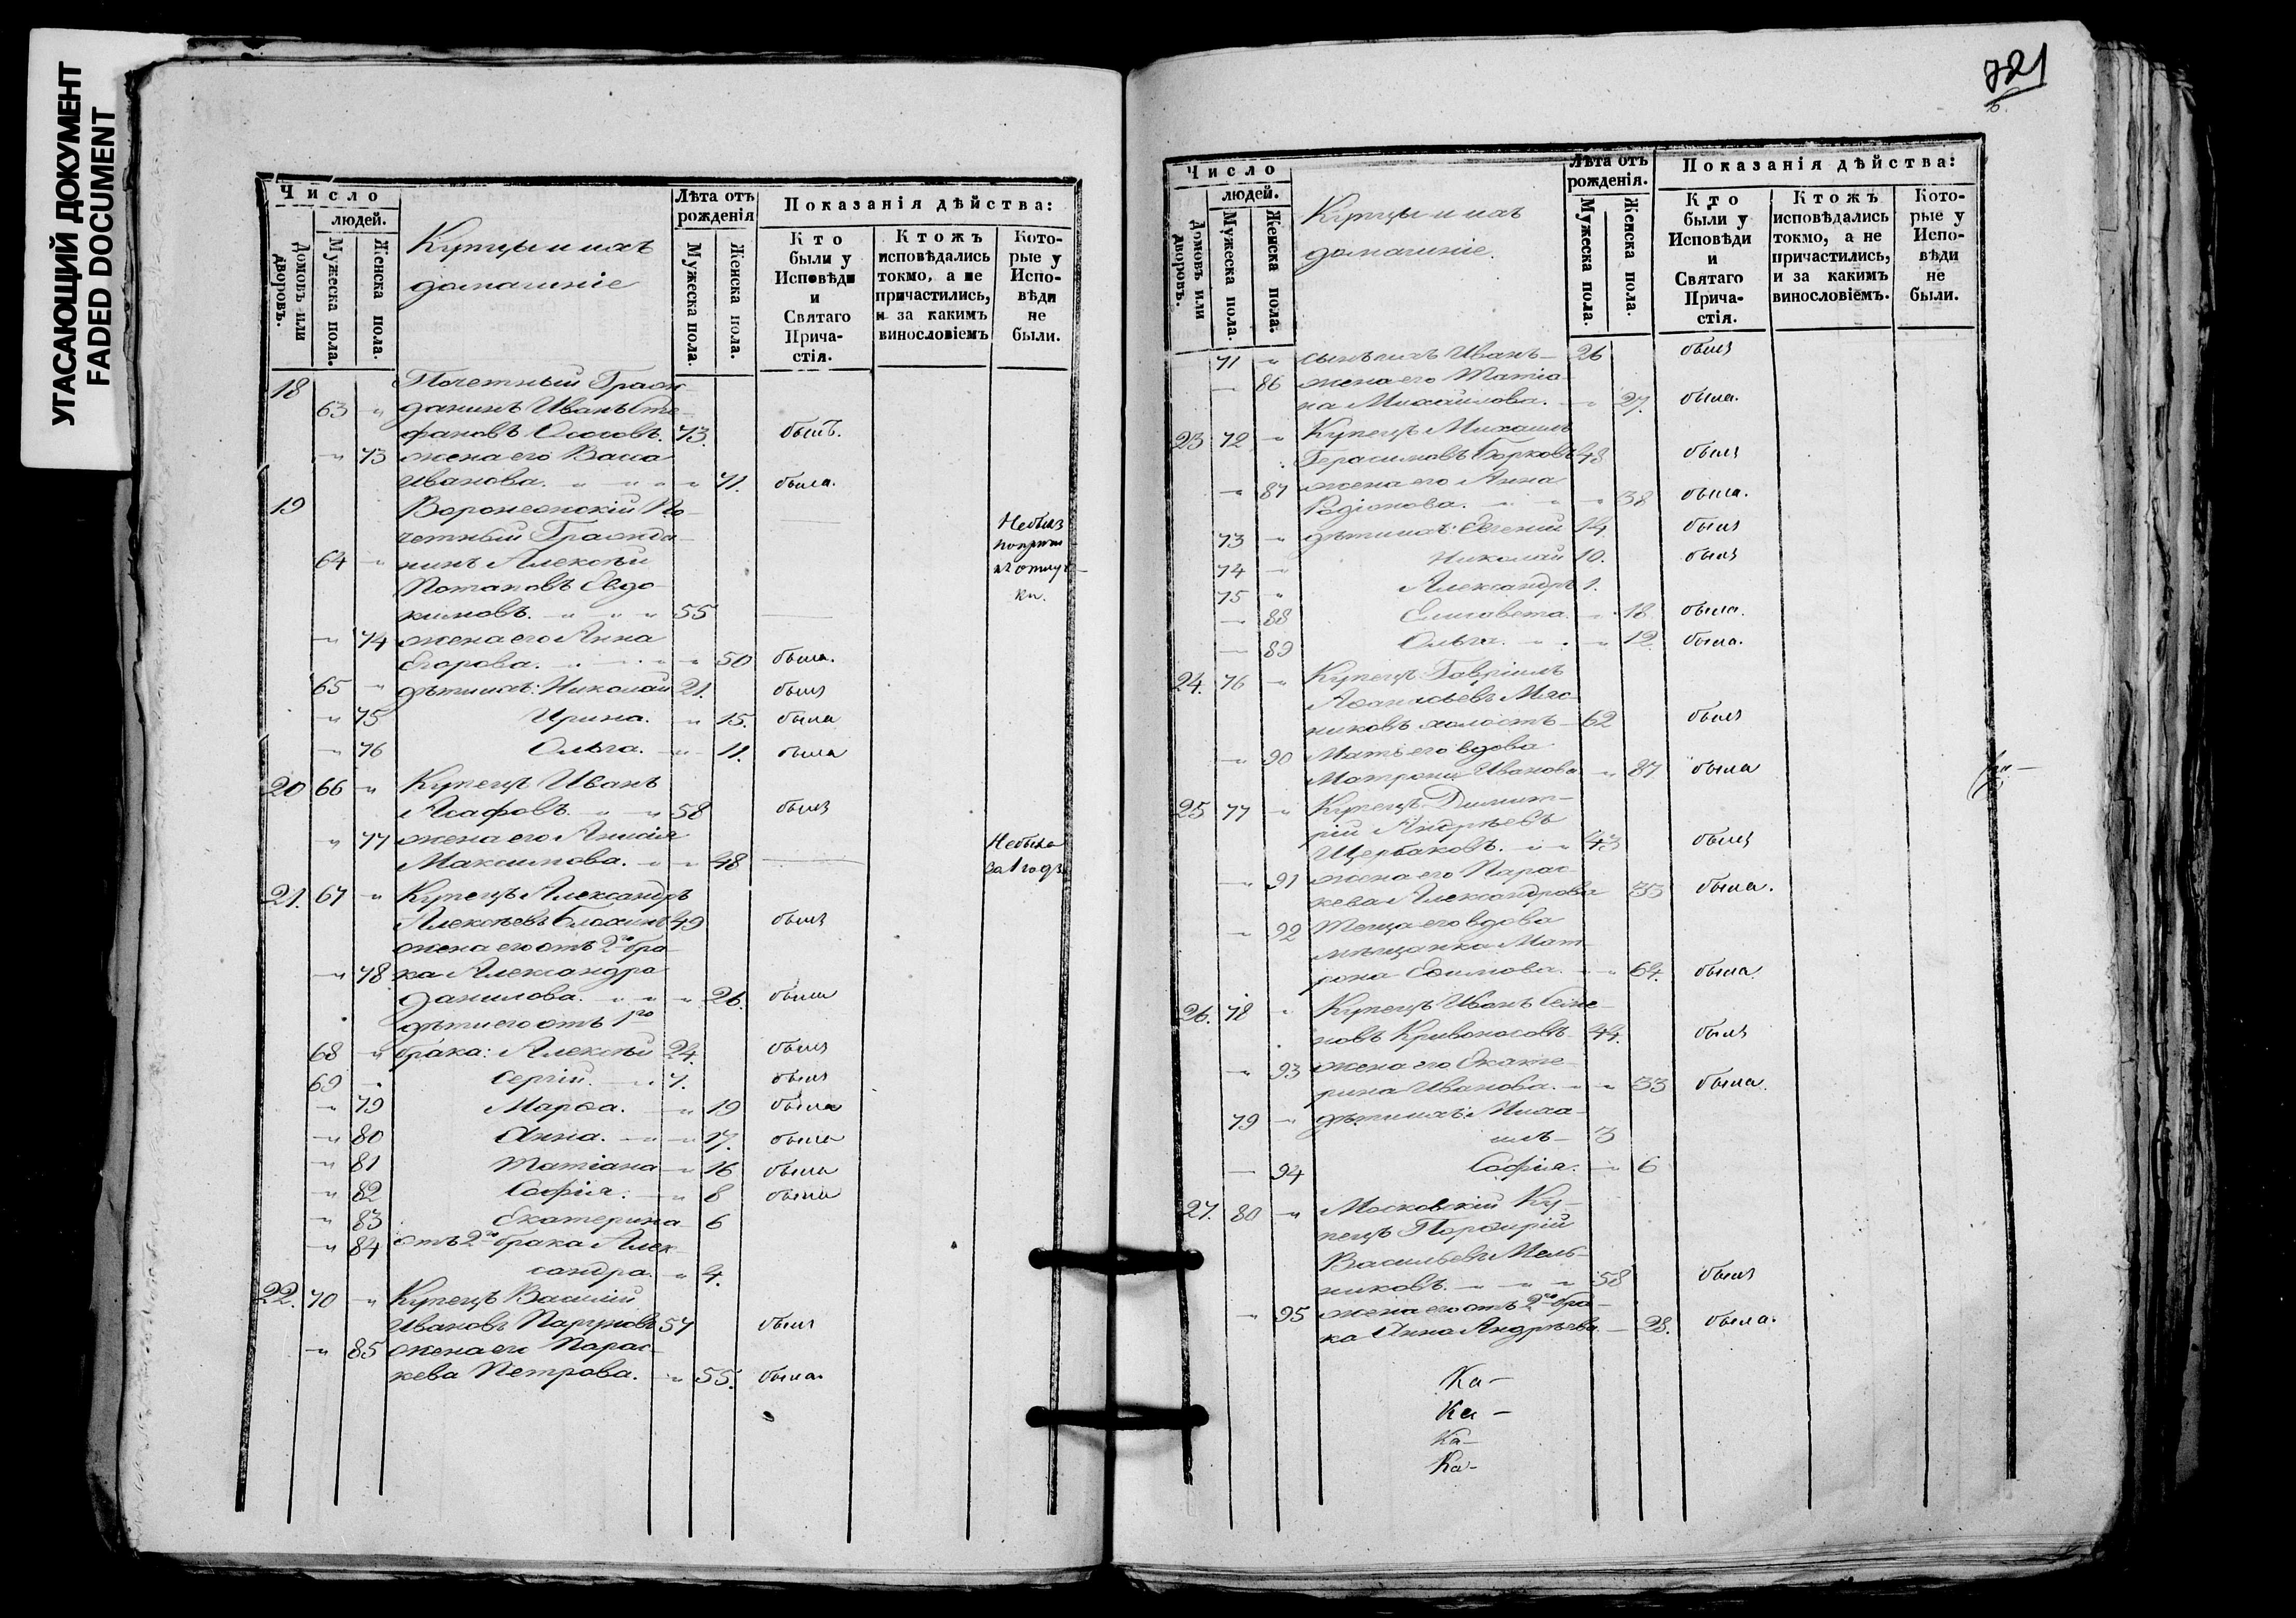 УГАСАЮЩИЙ ДОКУМЕНТ
FADED DOCUMENT
Число
людей.
Домовъ или дворовъ.
Мужеска пола.
Женска пола.
Купцы и ихъ
домашніе
Лѣта отъ рожденія
Мужеска пола.
Женска пола.
Показанія дѣйства:
Кто были у Исповѣди и Святаго Прича-стія.
Ктожъ исповѣдались токмо, а не причастились, и за какимъ винословіемъ
Кото-рые у Испо-вѣди не были.
18 Почетный Граж
63 " данинъ Иванъ Сте-
фановъ 73. былъ.
" 73 жена его Васса
Иванова. " " " " 71. была.
19 Воронежскій По-
четный Гражда-
64 " нинъ Алексѣй
Потаповъ Евдо-
кимовъ. " " " 55
Небылъ
по
отлуч-
ки.
" 74 жена его Анна
Егорова. " " " " 50 была.
65 " дѣти ихъ: Николай 21. былъ
" 75 Ирина. " 15. была
" 76 Ольга. " 11. была
20 66 " Купецъ Иванъ
Асафовъ. " " 58 былъ
" 77 жена его
Максимова. " " 48
Небыла
за 1 годъ
21. 67 " Купецъ Александръ
Алексѣевъ 49 былъ
жена его отъ 2го бра-
" 78 ка Александра
Данилова. " " " 26. была
дѣти его отъ 1го
68 " брака: Алексѣй 24. былъ
69 " Сергій. " 7. былъ
" 79 Марѳа. " 19 была
" 80 Анна. " " 17. была
" 81 Татіана " 16 была
" 82 Софія. " 8 была
" 83 Екатерина 6
" 84 отъ 2го брака Алек-
сандра. " 4.
22. 70 " Купецъ Василій
Ивановъ 57 былъ
" 85 жена его Парас-
кева Петрова. " 55. была.
721
Число
людей.
Домовъ или дворовъ.
Мужеска пола
Женска пола.
Купцы и ихъ
домашніе.
Лѣта отъ рожденія.
Мужеска пола.
Женска пола.
Показанія дѣйства:
Кто были у Исповѣди и Святаго Прича-стія.
Ктожъ исповѣдались токмо, а не причастились, и за какимъ винословіемъ.
Кото-рые у Испо-вѣди не были.
71 " сынъ ихъ Иванъ 26 былъ
" 86 жена его Татіа-
на Михайлова. " 27. была.
23 72 " Купецъ Михаилъ
Герасимовъ Борковъ 48 былъ
" 87 жена его Анна
Родіонова. " " " 38 была.
73 " дѣти ихъ: Евгеній 14. былъ
74 " Николай 10. былъ
75 " Александръ 1.
" 88 Елисавета. " 18 была.
" 89 Ольга. " " " 12 была.
24. 76 " Купецъ Гавріилъ
Аѳанасьевъ Мяс-
никовъ холостъ 62 былъ
" 90 Мать его вдова
Матрона Иванова " 87 была
25 77 " Купецъ Димит-
рій Андрѣевъ
Щербаковъ. " " 43 былъ
" 91 жена его Парас-
кева Александрова 35 была.
" 92 Теща его вдова
мѣщанка Мат-
рона Ефимова. " " 64. была
26. 78 " Купецъ Иванъ Семе-
новъ Кривоносовъ 44. былъ
" 93 жена его Екате-
рина Иванова. " " 33 была.
79 " дѣти ихъ: Миха-
илъ 3
94 Софія. " 6
27. 80 " Московскій Ку-
пецъ Порфирій
Васильевъ Мель-
никовъ. " " " 58 былъ
" 95 жена его отъ 2го бра-
ка Анна Андрѣева. 28. была.
Ка-
Ка-
Ка-
Ка-